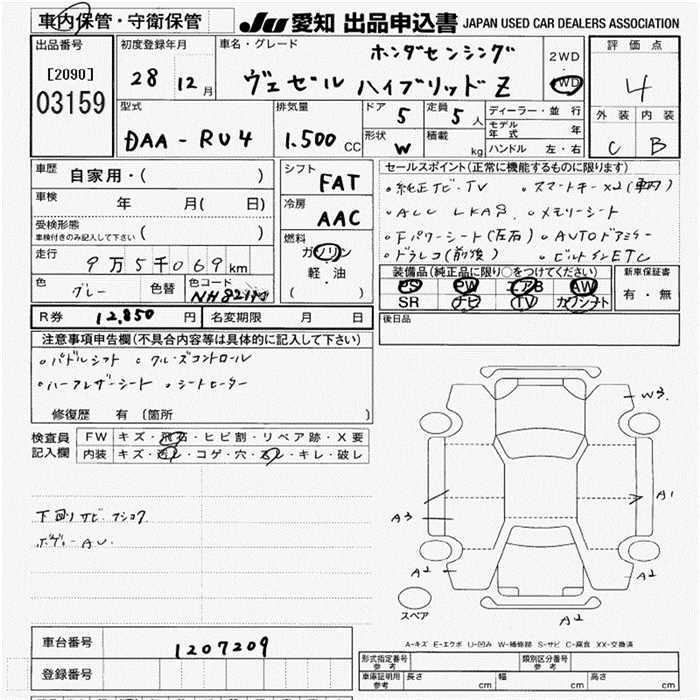 車内保管・守衛保管
JU 愛知 出品申込書 JAPAN USED CAR DEALERS ASSOCIATION
出品番号
[2090]
03159
初度登録年月
28 12月
車名・グレード
ホンダセンシング
ヴェゼル ハイブリッドZ
2WD
4WD
評価点
4
外装 内装
C B
型式
DAA-RU4
排気量
1.500 CC
ドア 5
定員 5 人
形状 W
積載 kg
ディーラー・並行
モデル年式 年
ハンドル 左・右
車歴
自家用・( )
車検
年 月( 日)
受検形態
車検付きのみ記入して下さい ( )
走行
9万5千069km
色
グレー
色替
色コード
シフト
FAT
冷房
AAC
燃料
ガソリン
軽・油
( )
セールスポイント(正常に機能するものに限ります)
・純正ナビ・TV ・スマートキー×2(車内)
・ACC LKAS ・メモリーシート
・Fパワーシート(左右) ・AUTOドアミラー
・ドラレコ(前後) ・ビルトインETC
装備品(純正品に限り○をつけてください)
PS PW エアB AW
SR ナビ TV カワシート
新車保証書
有・無
後日品
R券 12,850 円
名変期限 月 日
注意事項申告欄(不具合内容等は具体的に記入して下さい)
・パドルシフト ・クルーズコントロール
・ハーフレザーシート ・シートヒーター
修復歴 有 (箇所 )
検査員
記入欄
FW キズ・飛石・ヒビ割・リペア跡・X要
内装 キズ・汚レ・コゲ・穴・スレ・キレ・破レ
下回リサビ
ボディーAU
W3
A1
A3
A2
A2
A2
スペア
A-キズ E-エクボ U-凹み W-補修跡 S-サビ C-腐食 XX-交換済
車台番号
1207209
登録番号
形式指定番号
参考
類別区分番号
参考
車庫証明用
参考
長さ cm
幅 cm
高さ cm